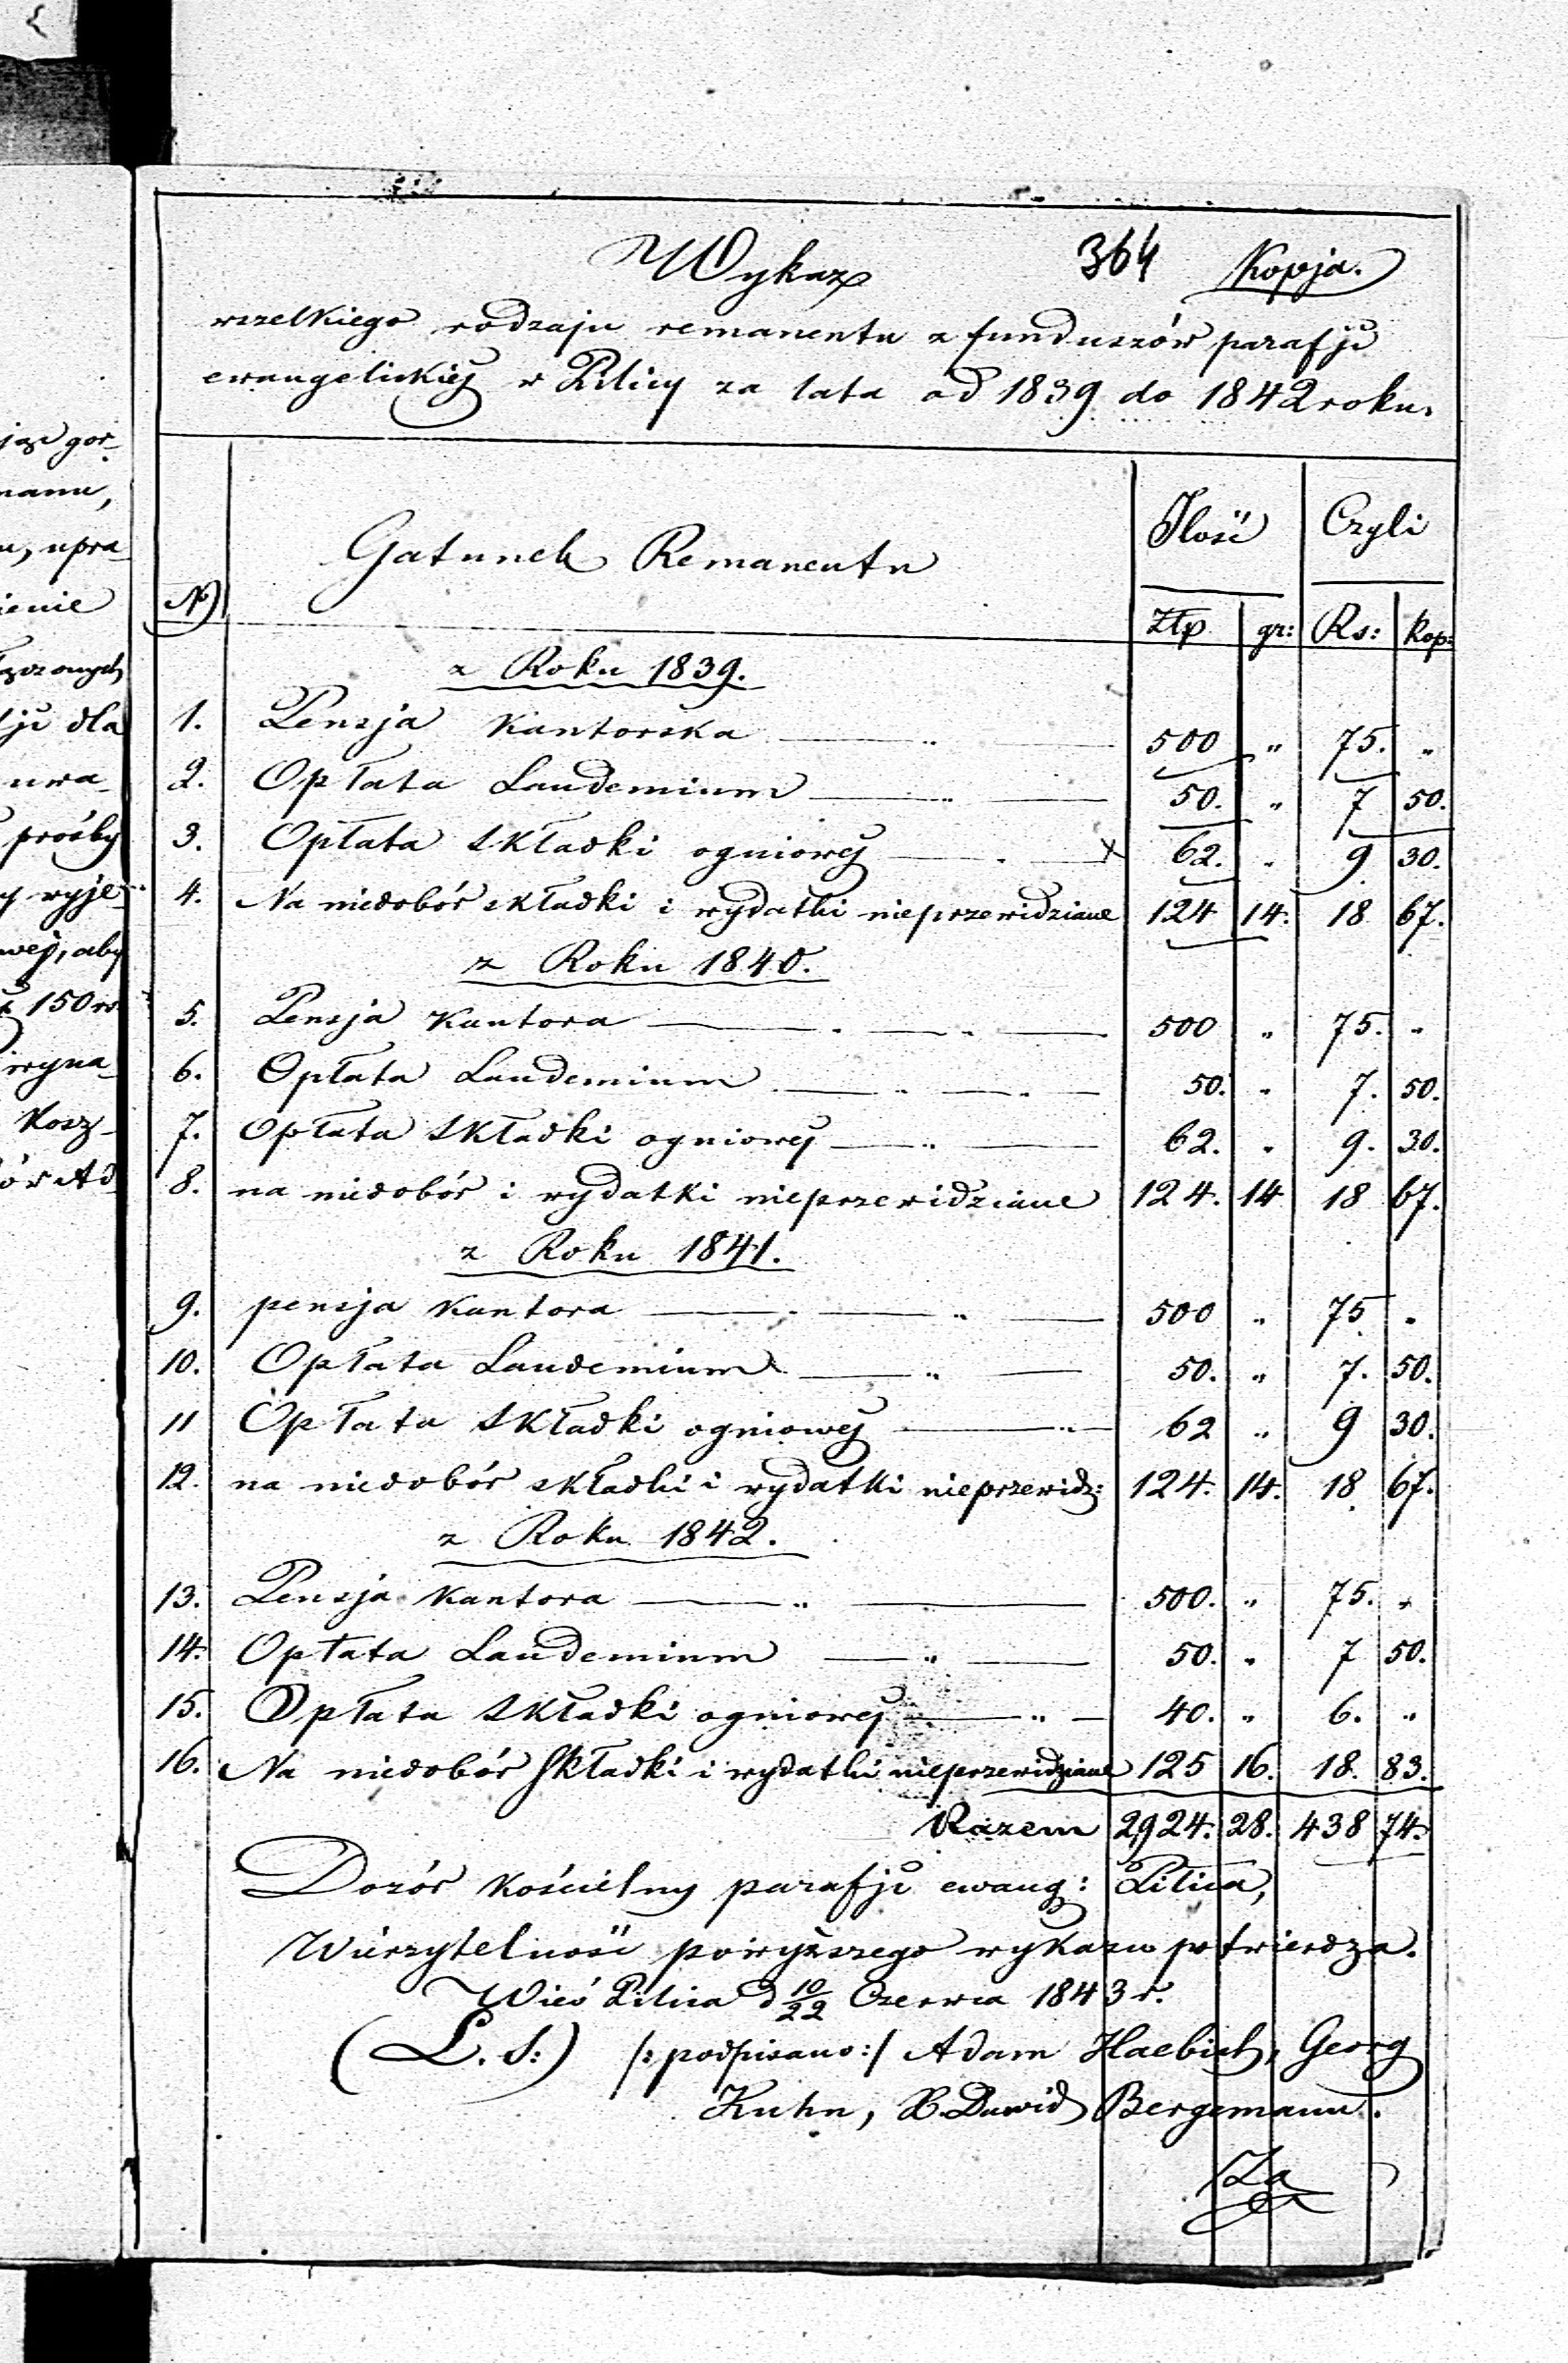 jąc gor-
mann,
u, upra-
ienie
łączonych
fji dla
uwa-
prośby
y wyje-
wej, aby
150 rs.
wyna-
Kosz-
ór Ad-
Wykaz 364 Kopja.
wszelkiego rodzaju remanentu z funduszów parafji
ewangelickiej w Pilicy za lata od 1839 do 1842 roku.
No Gatunek Remanentu Ilość Czyli
Złp gr: Rs: Kop:
z Roku 1839.
1. Pensja Kantorska — „ — 500 „ 75. „
2. Opłata Laudemium — „ — 50. „ 7 50.
3. Opłata składki ogniowej — . — x 62. „ 9 30.
4. Na niedobór składki i wydatki nieprzewidziane 124 14. 18 67.
z Roku 1840.
5. Pensja Kantora — . — „ — 500 „ 75. „
6. Opłata Laudemium — . — „ — 50. „ 7. 50.
7. Opłata składki ogniowej — „ — 62. „ 9. 30.
8. na niedobór i wydatki nieprzewidziane 124. 14 18 67.
z Roku 1841.
9. pensja Kantora — . — „ — 500 „ 75 „
10. Opłata Laudemium — „ — 50. „ 7. 50.
11 Opłata składki ogniowej — „ — 62 „ 9 30.
12. na niedobór składki i wydatki nieprzewidz: 124. 14. 18. 67.
z Roku 1842.
13. Pensja Kantora — „ — 500. „ 75. „
14. Opłata Laudemium — „ — 50. „ 7 50.
15. Opłata składki ogniowej — „ — 40. „ 6. „
16. Na niedobór składki i wydatki nieprzewidziane 125 16. 18. 83.
Razem 2924. 28. 438 74.
Dozór kościelny parafji ewang: Pilica,
Wierzytelność powyższego wykazu potwierdza.
Wieś Pilica d 10/22 Czerwca 1843 r.
(L. S:) /: podpisano :/ Adam Haebich, Georg
Kuhn, X. Dawid Bergemann.
Za